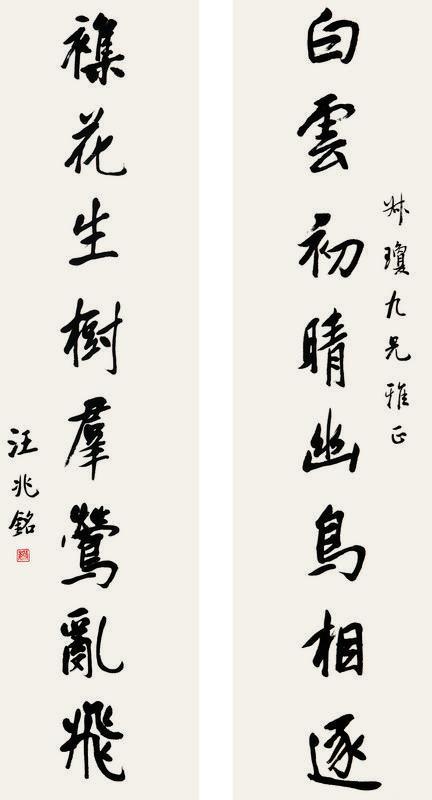 叔瓊九兄雅正
白雲初晴幽鳥相逐
襍花生樹羣鶯亂飛
汪兆銘